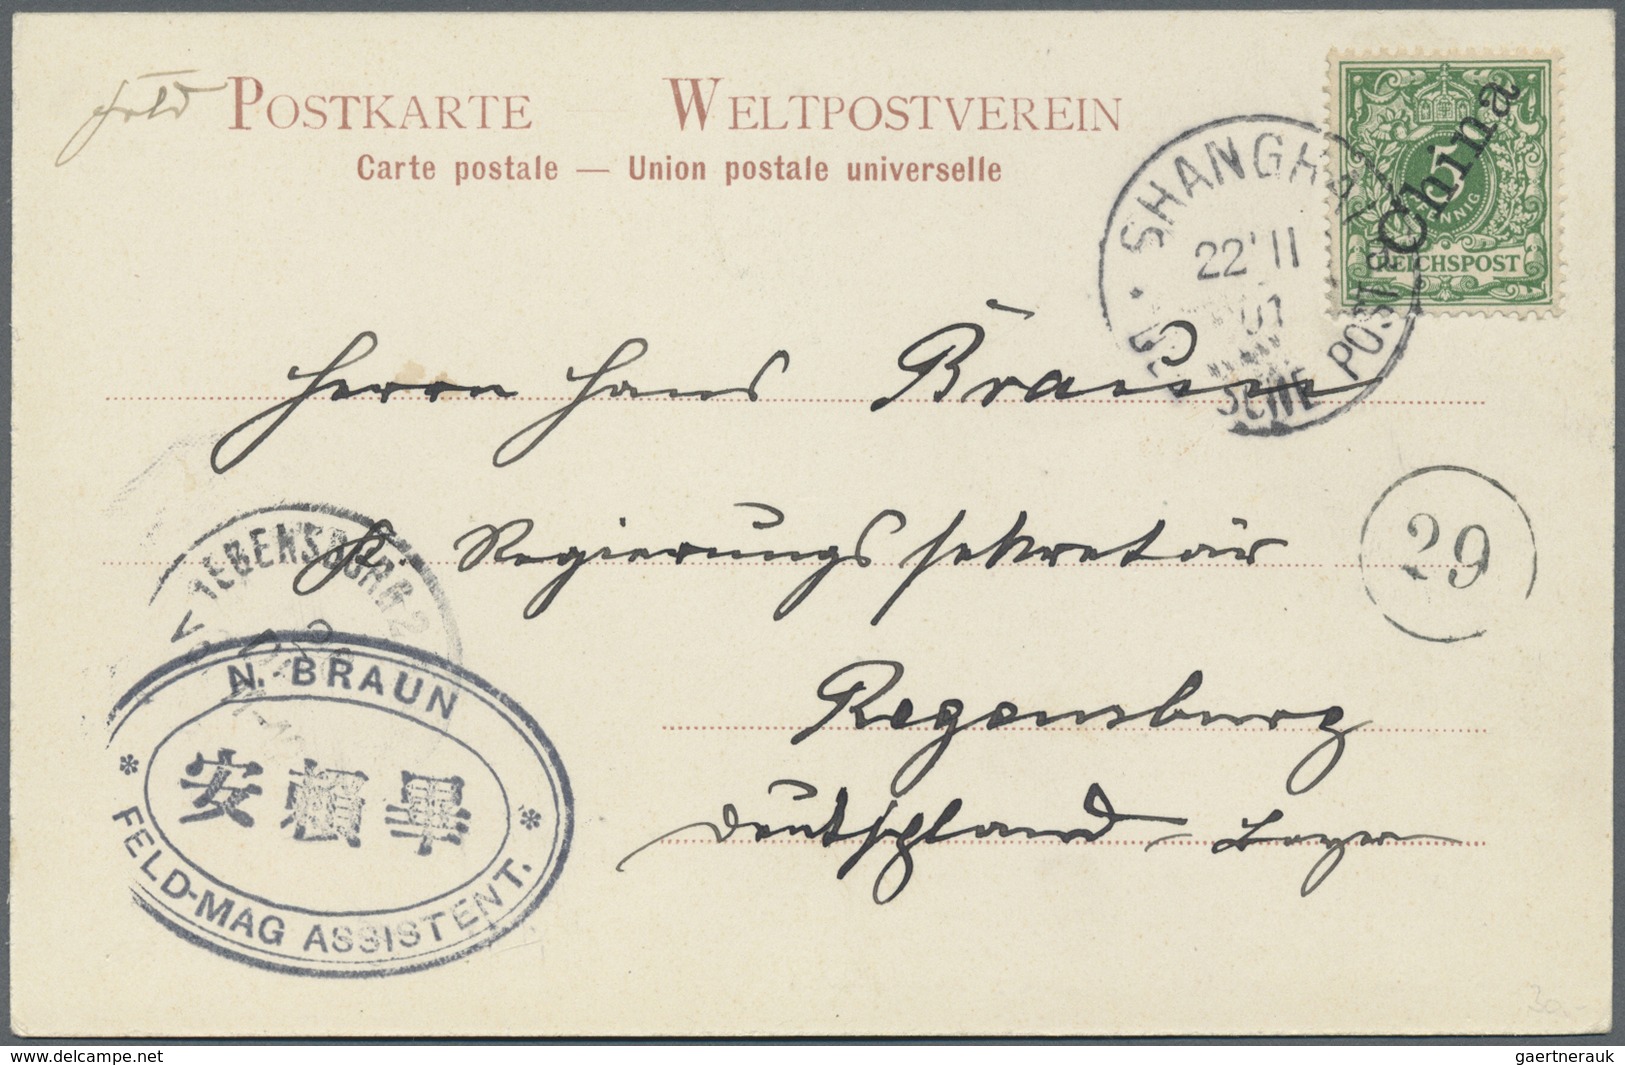 feld
POSTKARTE WELTPOSTVEREIN
Carte postale — Union postale universelle
China
5
PFENNIG
REICHSPOST
SHANGHAI
22 11
01
DEUTSCHE POST
Herrn Hans Braun
K. Regierungssekretär
29
Regensburg
Deutschland Bayern
N. BRAUN
安賴畢
FELD-MAG ASSISTENT.
30.-
gaertnerauk